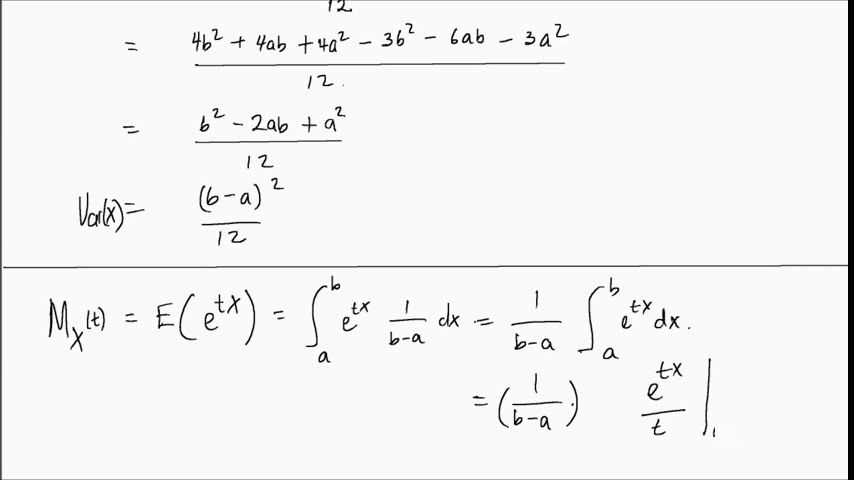 12
= (4b² + 4ab + 4a² - 3b² - 6ab - 3a²) / 12.
= (b² - 2ab + a²) / 12
Var(x) = (b-a)² / 12
M_X(t) = E(e^{tX}) = ∫_a^b e^{tx} 1/(b-a) dx = 1/(b-a) ∫_a^b e^{tx} dx.
= (1/(b-a)) e^{tx}/t |